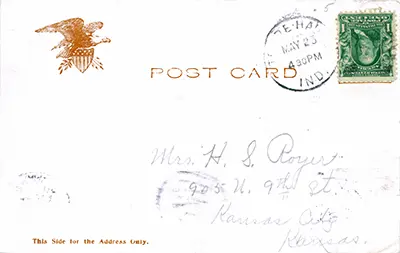 MAY 23
4:30 PM
IND.
1
POST CARD
Mrs. H. S. Royer
905 N. 9th St.
Kansas City
Kansas.
This Side for the Address Only.